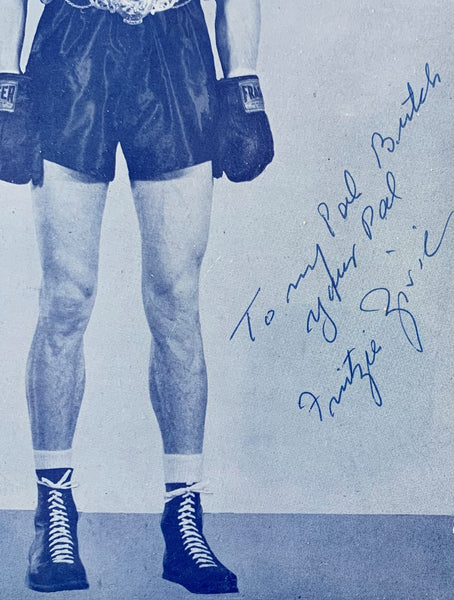 FRA
To my Pal Butch
your Pal
Fritzie Zivic